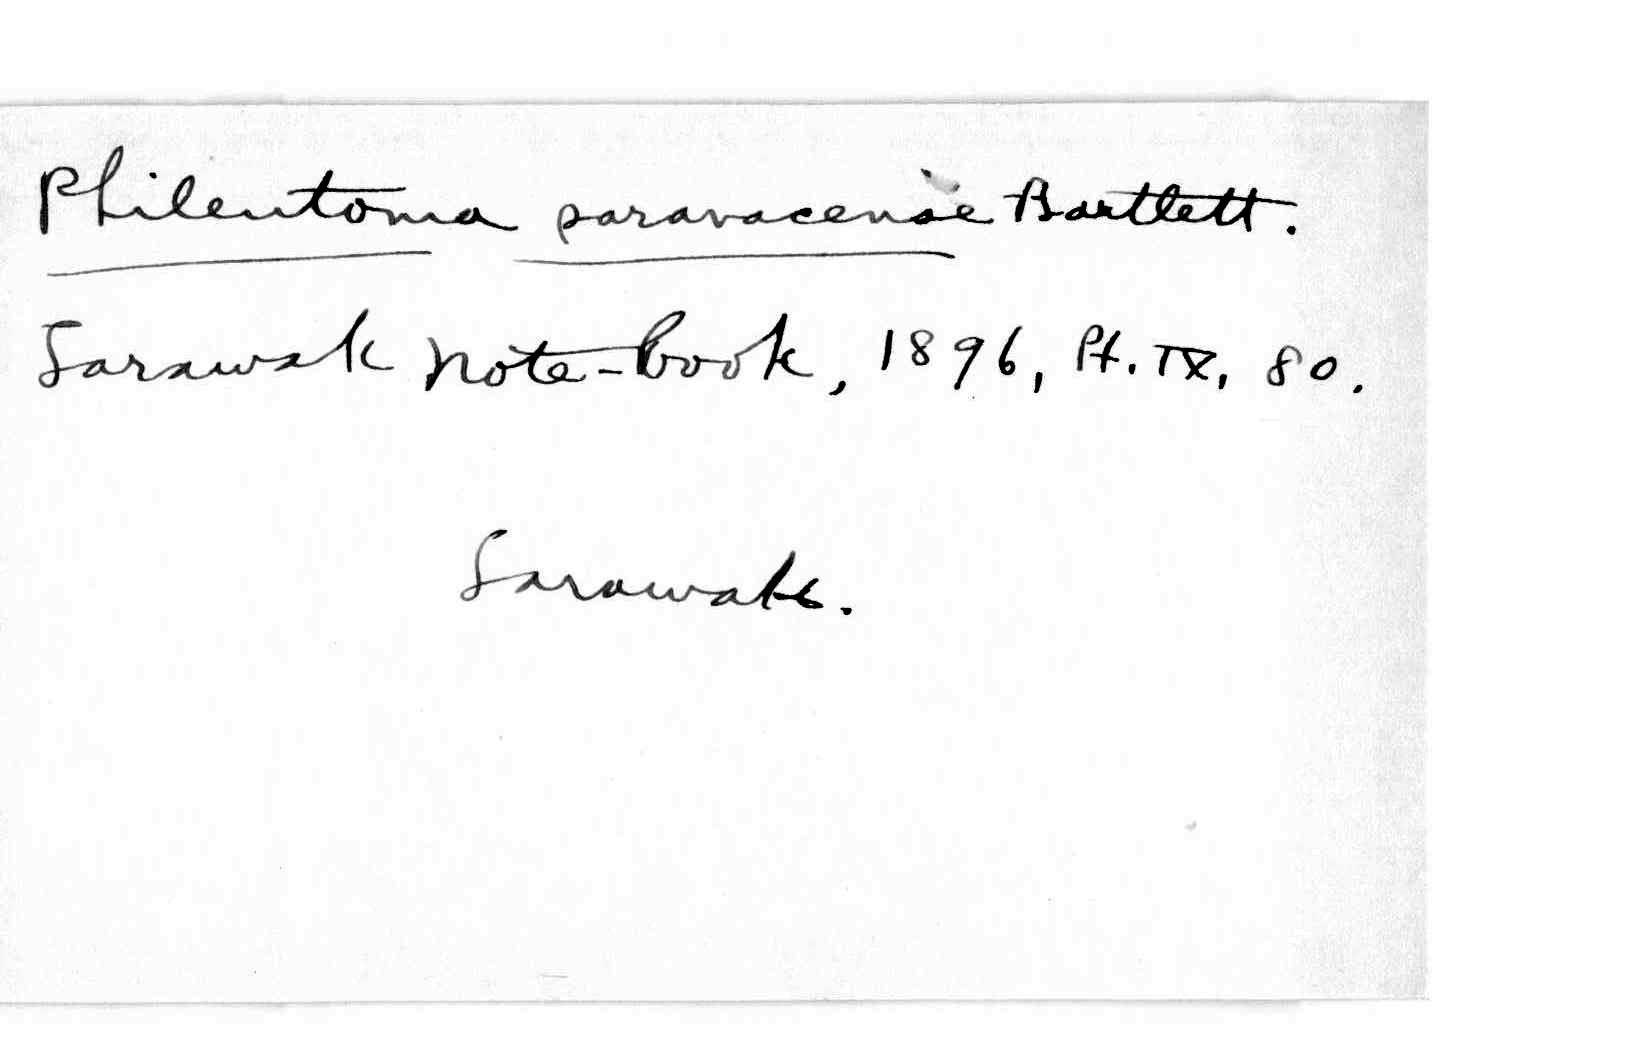 Philentoma saravacense Bartlett.
Sarawak Note-book, 1896, Pt. IX, 80.
Sarawak.